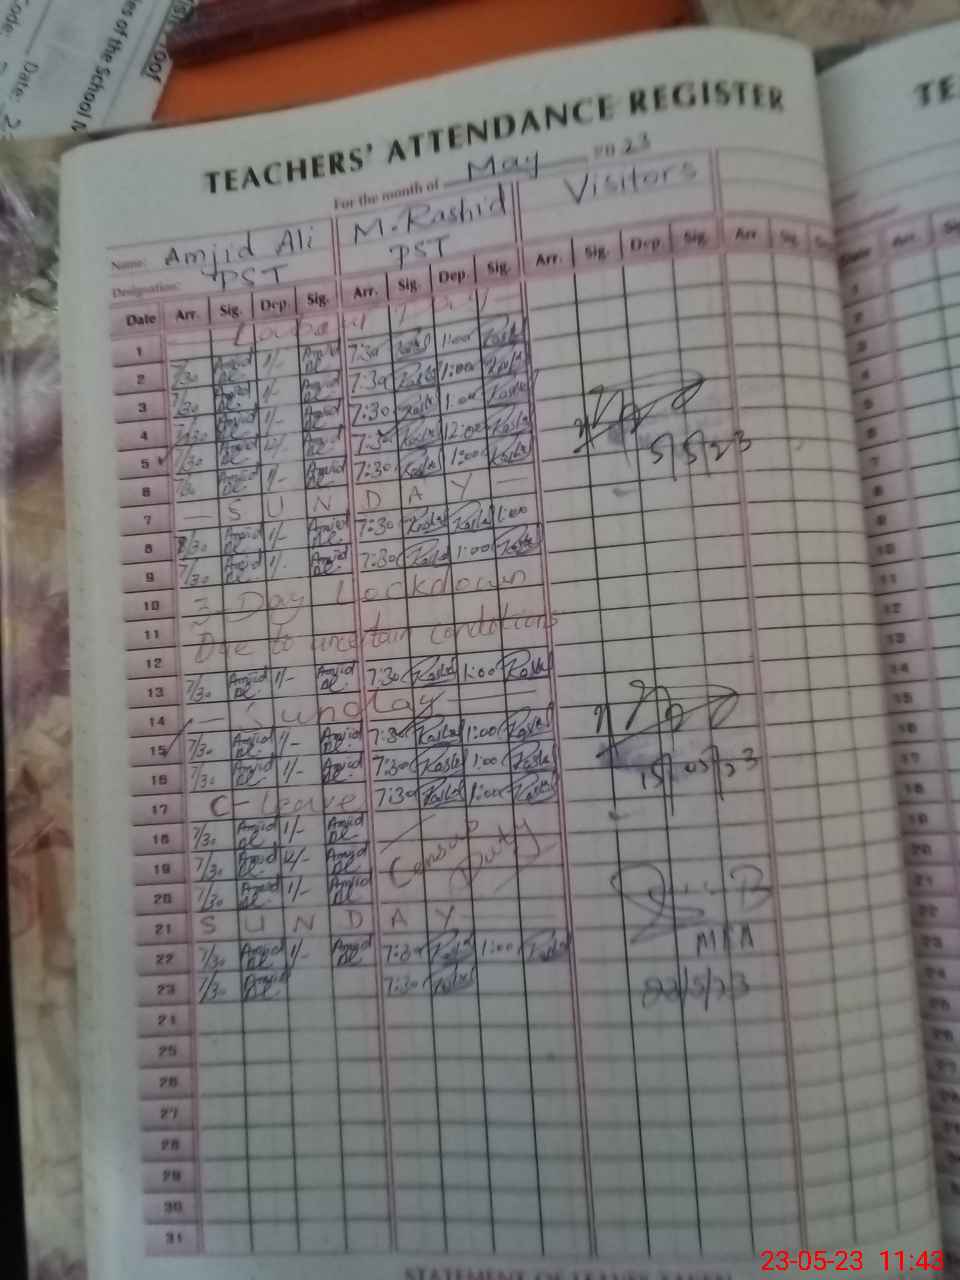 Code: Date:
les of the School
TEACHERS' ATTENDANCE REGISTER
For the month of May 2023
Name: Amjid Ali M. Rashid Visitors
Designation: PST PST
Date Arr. Sig. Dep. Sig. Arr. Sig. Dep. Sig. Arr. Sig. Dep. Sig. Arr.
1 Labour Day
2 7/30 Amjid Ali 1/- Amjid Ali 7:30 Rashid 1:00 Rashid
3 7/30 Amjid Ali 1/- Amjid Ali 7:30 Rashid 1:00 Rashid
4 7/30 Amjid Ali 1/- Amjid Ali 7:30 Rashid 1:00 Rashid
5 7/30 Amjid Ali 12/- Amjid Ali 7:30 Rashid 12:00 Rashid 5/5/23
6 7/30 Amjid Ali 1/- Amjid Ali 7:30 Rashid 1:00 Rashid
7 — S U N D A Y —
8 7/30 Amjid Ali 1/- Amjid Ali 7:30 Rashid Rashid 1:00
9 7/30 Amjid Ali 1/- Amjid Ali 7:30 Rashid 1:00 Rashid
10 3-Day Lockdown
11 Due to uncertain conditions
12
13 7/30 Amjid Ali 1/- Amjid Ali 7:30 Rashid 1:00 Rashid
14 — Sunday —
15 7/30 Amjid Ali 1/- Amjid Ali 7:30 Rashid 1:00 Rashid
16 7/30 Amjid Ali 1/- Amjid Ali 7:30 Rashid 1:00 Rashid 15/05/23
17 C-Leave 7:30 Rashid 1:00 Rashid
18 7/30 Amjid Ali 1/- Amjid Ali
19 7/30 Amjid Ali 12/- Amjid Ali Census Duty
20 7/30 Amjid Ali 1/- Amjid Ali
21 S U N D A Y
22 7/30 Amjid Ali 1/- Amjid Ali 7:30 Rashid 1:00 Rashid MEA
23 7/30 Amjid Ali 7:30 Rashid 23/5/23
24
25
26
27
28
29
30
31
STATEMENT OF LEAVES TAKEN
23-05-23 11:43